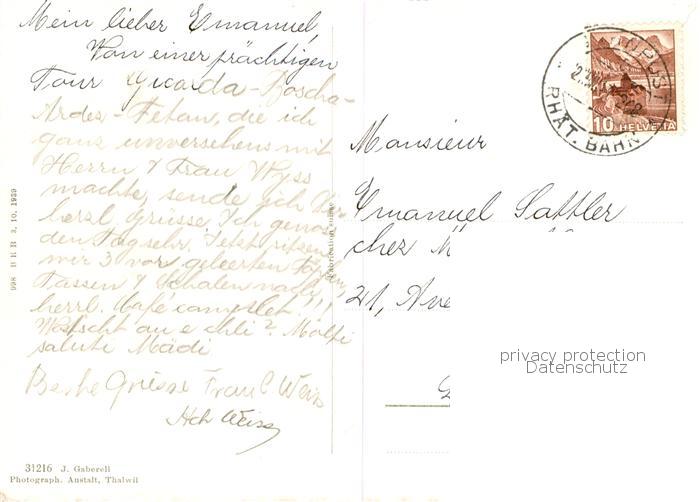 Mein lieber Emanuel,
Von einer prächtigen
Tour Guarda-Boscha-
Ardez-Fetan, die ich
ganz unversehens mit
Herrn & Frau Wyss
machte, sende ich Dir
herzl. Grüsse. Ich genoss
den Tag sehr. Jetzt sitzen
wir 3 vor geleerten
Tassen & Schalen nach
herrl. Café complet!!!
Wottscht au e chli? Molti
saluti Mädi
Beste Grüsse Frau C Weiss
Hch Weiss
998 BRB 3. 10. 1939
Fabrication suisse
31216 J. Gaberell
Photograph. Anstalt, Thalwil
BAHNPOST
RHÄT. BAHN
10 HELVETIA
Monsieur
Emanuel Sattler
chez M
21, Ave
privacy protection
Datenschutz